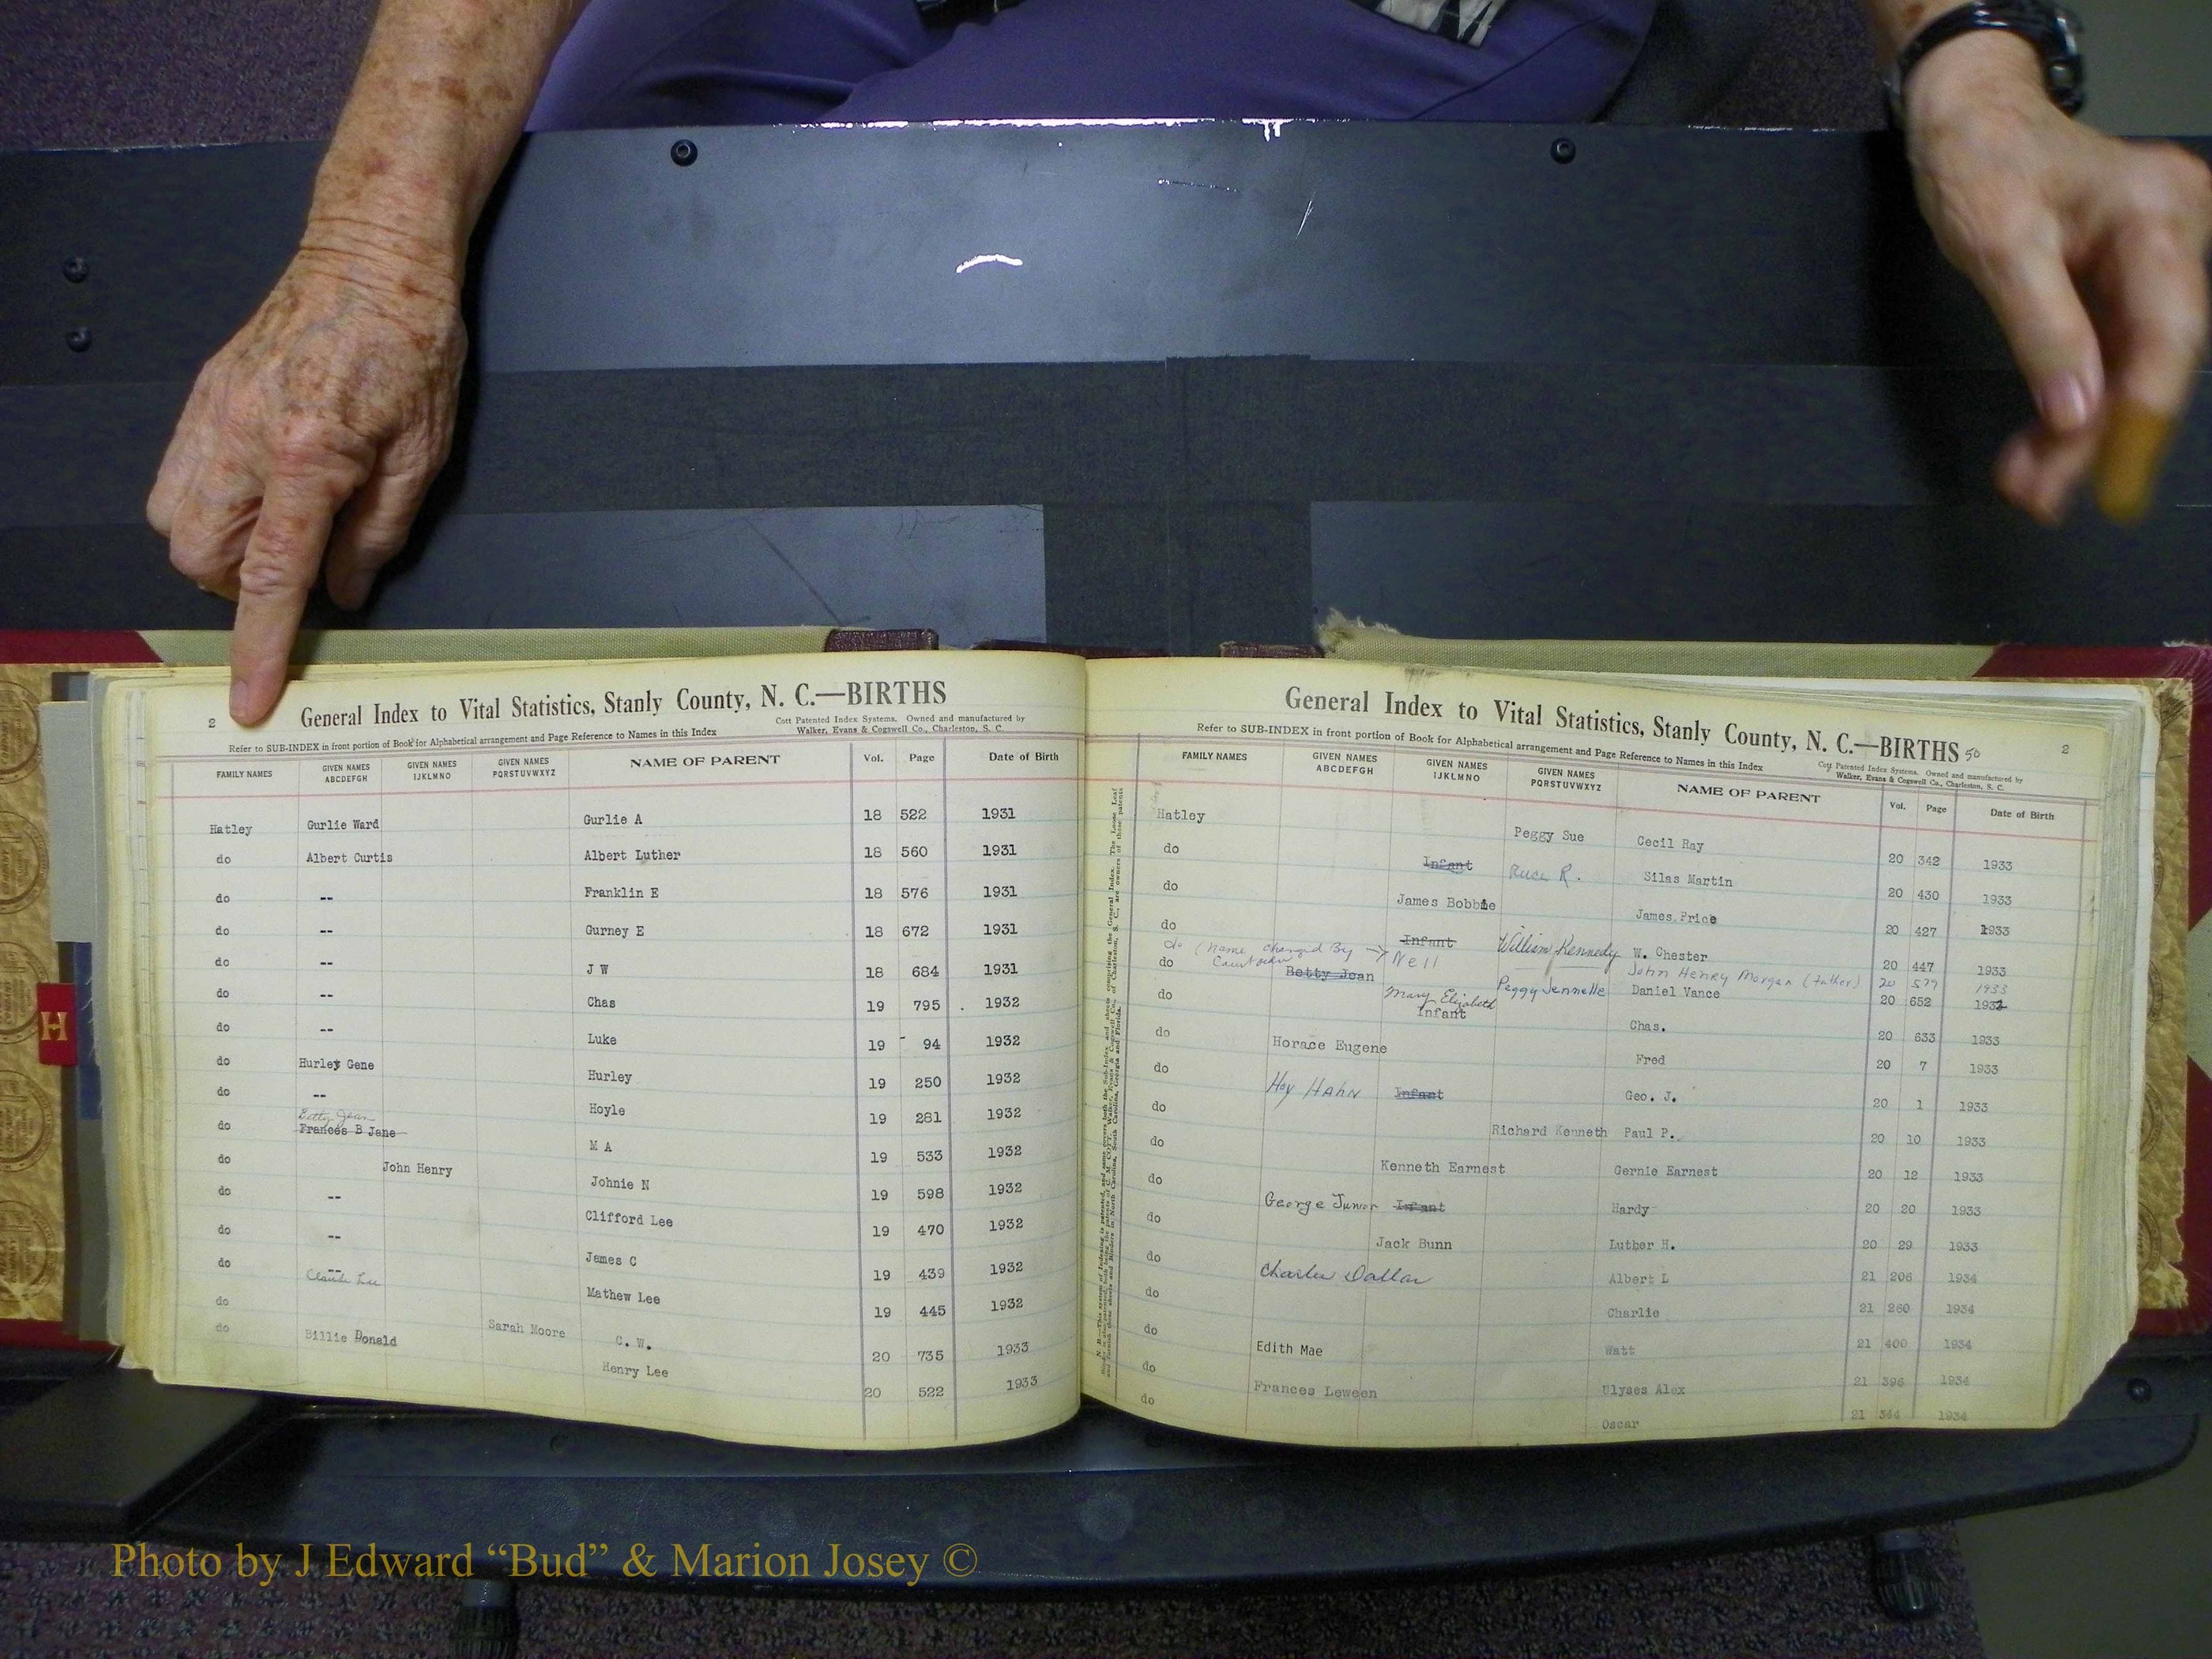 2
General Index to Vital Statistics, Stanly County, N. C.—BIRTHS
Refer to SUB-INDEX in front portion of Book for Alphabetical arrangement and Page Reference to Names in this Index
Cott Patented Index Systems. Owned and manufactured by
Walker, Evans & Cogswell Co., Charleston, S. C.
FAMILY NAMES GIVEN NAMES ABCDEFGH GIVEN NAMES IJKLMNO GIVEN NAMES PQRSTUVWXYZ NAME OF PARENT Vol. Page Date of Birth
Hatley Gurlie Ward Gurlie A 18 522 1931
do Albert Curtis Albert Luther 18 560 1931
do -- Franklin E 18 576 1931
do -- Gurney E 18 672 1931
do -- J W 18 684 1931
do -- Chas 19 795 1932
do -- Luke 19 94 1932
do Hurley Gene Hurley 19 250 1932
do -- Hoyle 19 281 1932
Betty Jean
do Frances B Jane M A 19 533 1932
do John Henry Johnie N 19 598 1932
do -- Clifford Lee 19 470 1932
do -- James C 19 439 1932
do -- Claude Lee Mathew Lee 19 445 1932
do Sarah Moore C. W. 20 735 1933
do Billie Donald Henry Lee 20 522 1933
H
General Index to Vital Statistics, Stanly County, N. C.—BIRTHS 50
2
Refer to SUB-INDEX in front portion of Book for Alphabetical arrangement and Page Reference to Names in this Index
Cott Patented Index Systems. Owned and manufactured by
Walker, Evans & Cogswell Co., Charleston, S. C.
FAMILY NAMES GIVEN NAMES ABCDEFGH GIVEN NAMES IJKLMNO GIVEN NAMES PQRSTUVWXYZ NAME OF PARENT Vol. Page Date of Birth
Hatley Peggy Sue Cecil Ray 20 342 1933
do Infant R. Silas Martin 20 430 1933
do James Bobbie James Price 20 427 1933
do Infant William Kennedy W. Chester 20 447 1933
do (Name changed By → Nell John Henry Morgan (father) 20 577 1933
do Betty Jean Peggy Jennelle Daniel Vance 20 652 1932
Mary Elizabeth
do Infant Chas. 20 633 1933
do Horace Eugene Fred 20 7 1933
do Hoy Hahn Infant Geo. J. 20 1 1933
do Richard Kenneth Paul P. 20 10 1933
do Kenneth Earnest Gernie Earnest 20 12 1933
do George Junior Infant Hardy 20 20 1933
do Jack Bunn Luther H. 20 29 1933
do Charles Dallas Albert L 21 206 1934
do Charlie 21 260 1934
do Edith Mae Watt 21 400 1934
do Frances Leween Ulyses Alex 21 396 1934
do Oscar 21 344 1934
Photo by J Edward “Bud” & Marion Josey ©